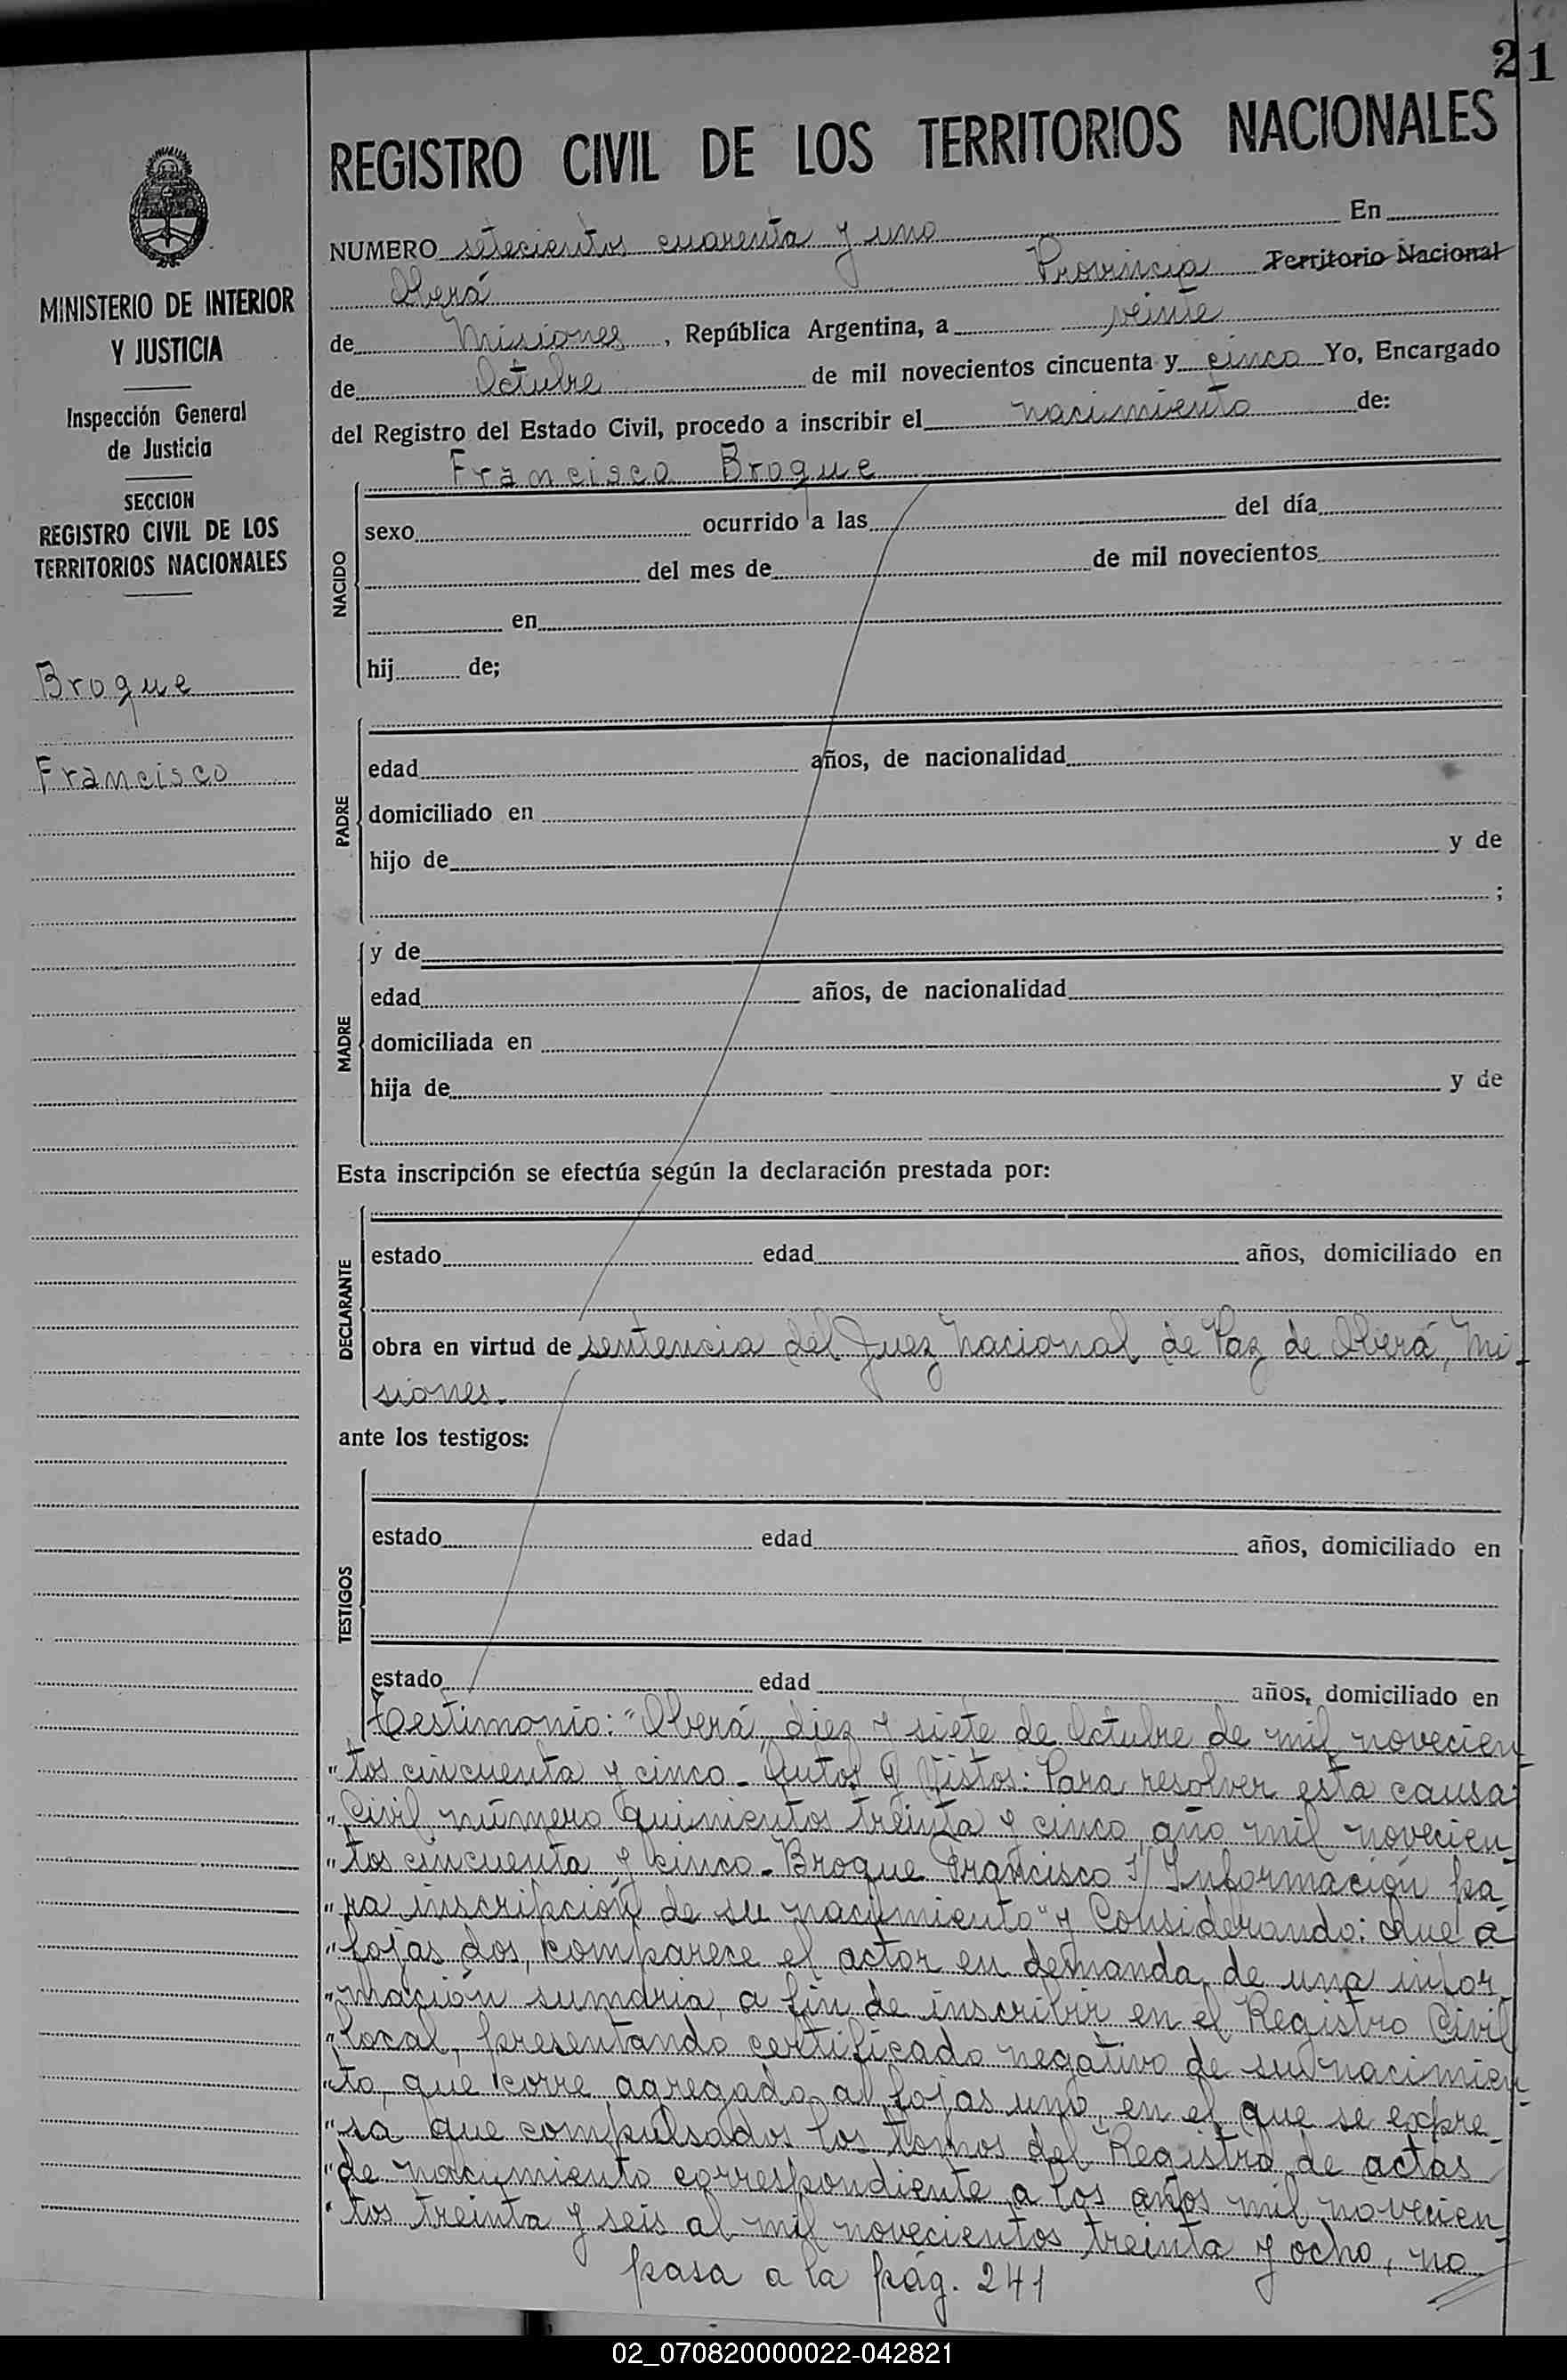 21
REGISTRO CIVIL DE LOS TERRITORIOS NACIONALES
MINISTERIO DE INTERIOR
Y JUSTICIA
Inspección General
de Justicia
SECCION
REGISTRO CIVIL DE LOS
TERRITORIOS NACIONALES
Broque
Francisco
NUMERO setecientos cuarenta y uno En
Oberá Provincia Territorio Nacional
de Misiones, República Argentina, a veinte
de Octubre de mil novecientos cincuenta y cinco Yo, Encargado
del Registro del Estado Civil, procedo a inscribir el nacimiento de:
Francisco Broque
NACIDO
sexo ocurrido a las del día
del mes de de mil novecientos
en
hij de;
PADRE
edad años, de nacionalidad
domiciliado en
hijo de y de
;
MADRE
y de
edad años, de nacionalidad
domiciliada en
hija de y de
Esta inscripción se efectúa según la declaración prestada por:
DECLARANTE
estado edad años, domiciliado en
obra en virtud de sentencia del Juez Nacional de Paz de Oberá, Mi-
siones.
ante los testigos:
TESTIGOS
estado edad años, domiciliado en
estado edad años, domiciliado en
Testimonio: "Oberá, diez y siete de Octubre de mil novecien-
"tos cincuenta y cinco - Autos y Vistos: Para resolver esta causa
"Civil número quinientos treinta y cinco, año mil novecien-
"tos cincuenta y cinco - Broque Francisco s/ Información pa-
"ra inscripción de su nacimiento" y Considerando: Que a
"fojas dos, comparece el actor en demanda de una infor-
"mación sumaria, a fin de inscribir en el Registro Civil
"local, presentando certificado negativo de su nacimien-
"to, que corre agregado a fojas uno, en el que se expre-
"sa que compulsados los tomos del Registro de actas
"de nacimiento correspondiente a los años mil novecien-
"tos treinta y seis al mil novecientos treinta y ocho, no
pasa a la pág. 241
02_070820000022-042821